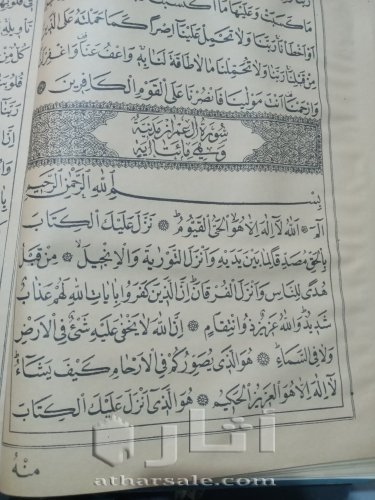 ما كسبت وعليها ما اكتسبت
او اخطأنا ربنا ولا تحمل علينا اصرا كما حملته على الذين
من قبلنا ربنا ولا تحملنا ما لا طاقة لنا به واعف عنا واغفر لنا
وارحمنا انت مولينا فانصرنا على القوم الكافرين
سورة ال عمران مدنية
وهي مائتا اية
بسم الله الرحمن الرحيم
الم الله لا اله الا هو الحي القيوم نزل عليك الكتاب
بالحق مصدقا لما بين يديه وانزل التورية والانجيل من قبل
هدى للناس وانزل الفرقان ان الذين كفروا بايات الله لهم عذاب
شديد والله عزيز ذو انتقام ان الله لا يخفى عليه شئ في الارض
ولا في السماء هو الذي يصوركم في الارحام كيف يشاء
لا اله الا هو العزيز الحكيم هو الذي انزل عليك الكتاب
منه
آثار
atharsale.com